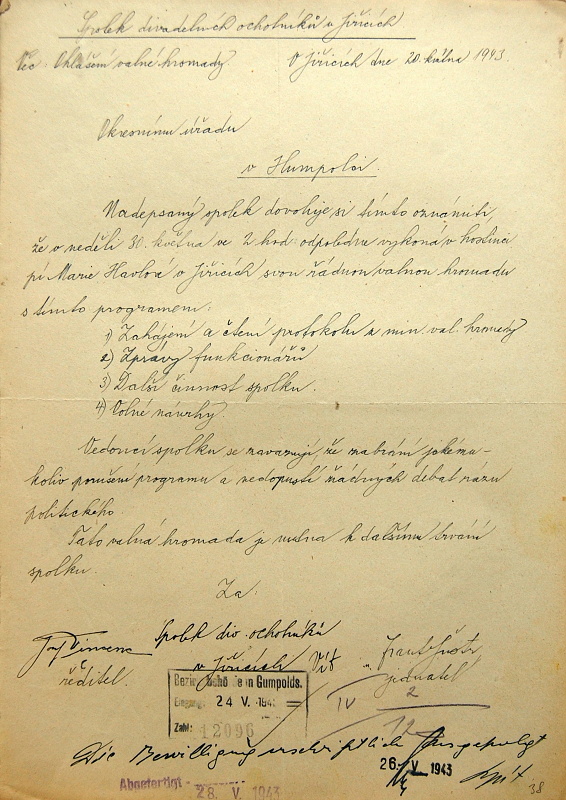 Spolek divadelních ochotníků v Jiřicích
Věc: Ohlášení valné hromady. V Jiřicích dne 20. května 1943
Okresnímu úřadu
v Humpolci.
Nadepsaný spolek dovoluje si tímto oznámiti,
že v neděli 30. května ve 2 hod. odpoledne vykoná v hostinci
pí Marie Havlové v Jiřicích svou řádnou valnou hromadu
s tímto programem:
1) Zahájení a čtení protokolu z min. val. hromady
2) Zprávy funkcionářů
3) Další činnost spolku.
4) Volné návrhy.
Vedoucí spolku se zavazují, že zabrání jakému-
koliv porušení programu a nedopustí žádných debat rázu
politického.
Tato valná hromada je nutna k dalšímu trvání
spolku.
Za:
Spolek div. ochotníků
v Jiřicích
ředitel. jednatel
Bezirksbehörde in Gumpolds.
Eingang: 24 V. 1943
Zahl: 12096
IV 2
12
Die Bewilligung
26. V. 1943
Abgefertigt - 28. V. 1943
38